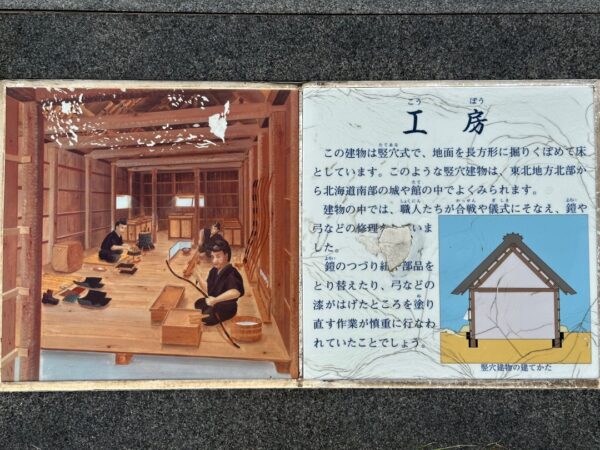 こう ぼう
工房
この建物は竪穴式で、地面を長方形に掘りくぼめて床
としています。このような竪穴建物は、東北地方北部か
ら北海道南部の城や館の中でよくみられます。
建物の中では、職人たちが合戦や儀式にそなえ、鎧や
弓などの修理を いま
した。
鎧のつづり 部品を
とり替えたり、弓などの
漆がはげたところを塗り
直す作業が慎重に行なわ
れていたことでしょう。
竪穴建物の建てかた